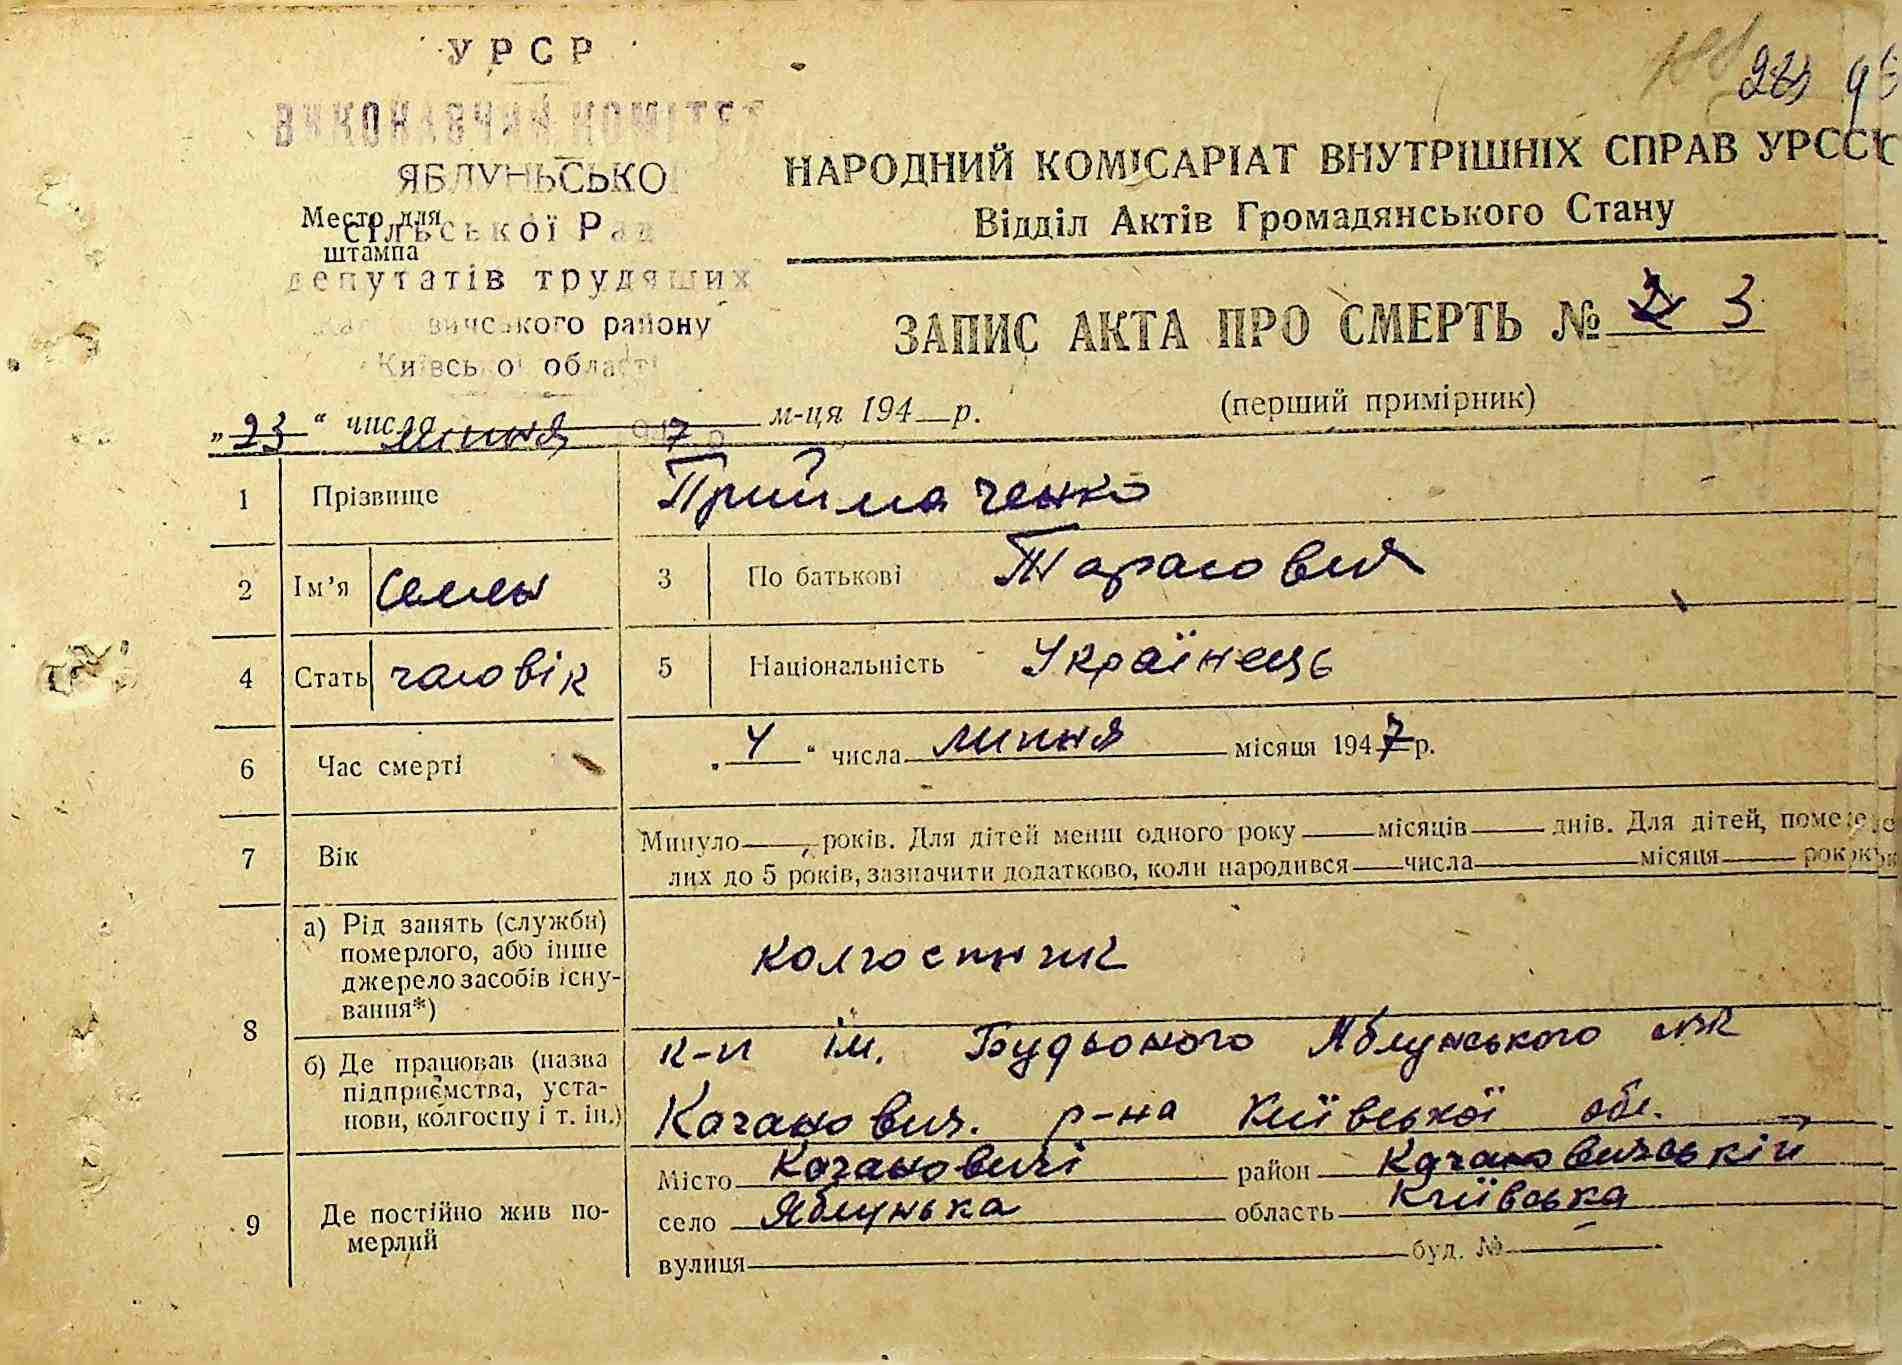 УРСР
ВИКОНАВЧИЙ КОМІТЕТ
ЯБЛУНЬСЬКО
Место для
сільської Рад
штампа
депутатів трудящих
винського району
Київської області
23 9
НАРОДНИЙ КОМІСАРІАТ ВНУТРІШНІХ СПРАВ УРСС
Відділ Актів Громадянського Стану
ЗАПИС АКТА ПРО СМЕРТЬ № 3
(перший примірник)
„23“ числа липня 7 м-ця 194 р.
1 Прізвище Приймаченко
2 Ім'я Семен 3 По батькові Тарасович
4 Стать чоловік 5 Національність Українець
6 Час смерті „4“ числа липня місяця 1947 р.
7 Вік Минуло рокiв. Для дітей менш одного року місяців днів. Для дітей, поме
лих до 5 років, зазначити додатково, коли народився числа місяця рок
8 а) Рід занять (служби)
померлого, або інше
джерело засобів існу-
вання*)
колгоспник
б) Де працював (назва
підприємства, уста-
нови, колгоспу і т. ін.)
к-п ім. Будьоного Яблунського
Качанович. р-на Київської обл.
9 Де постійно жив по-
мерлий
Місто Качановичі район Качановичський
село Яблунька область Київська
вулиця буд. №